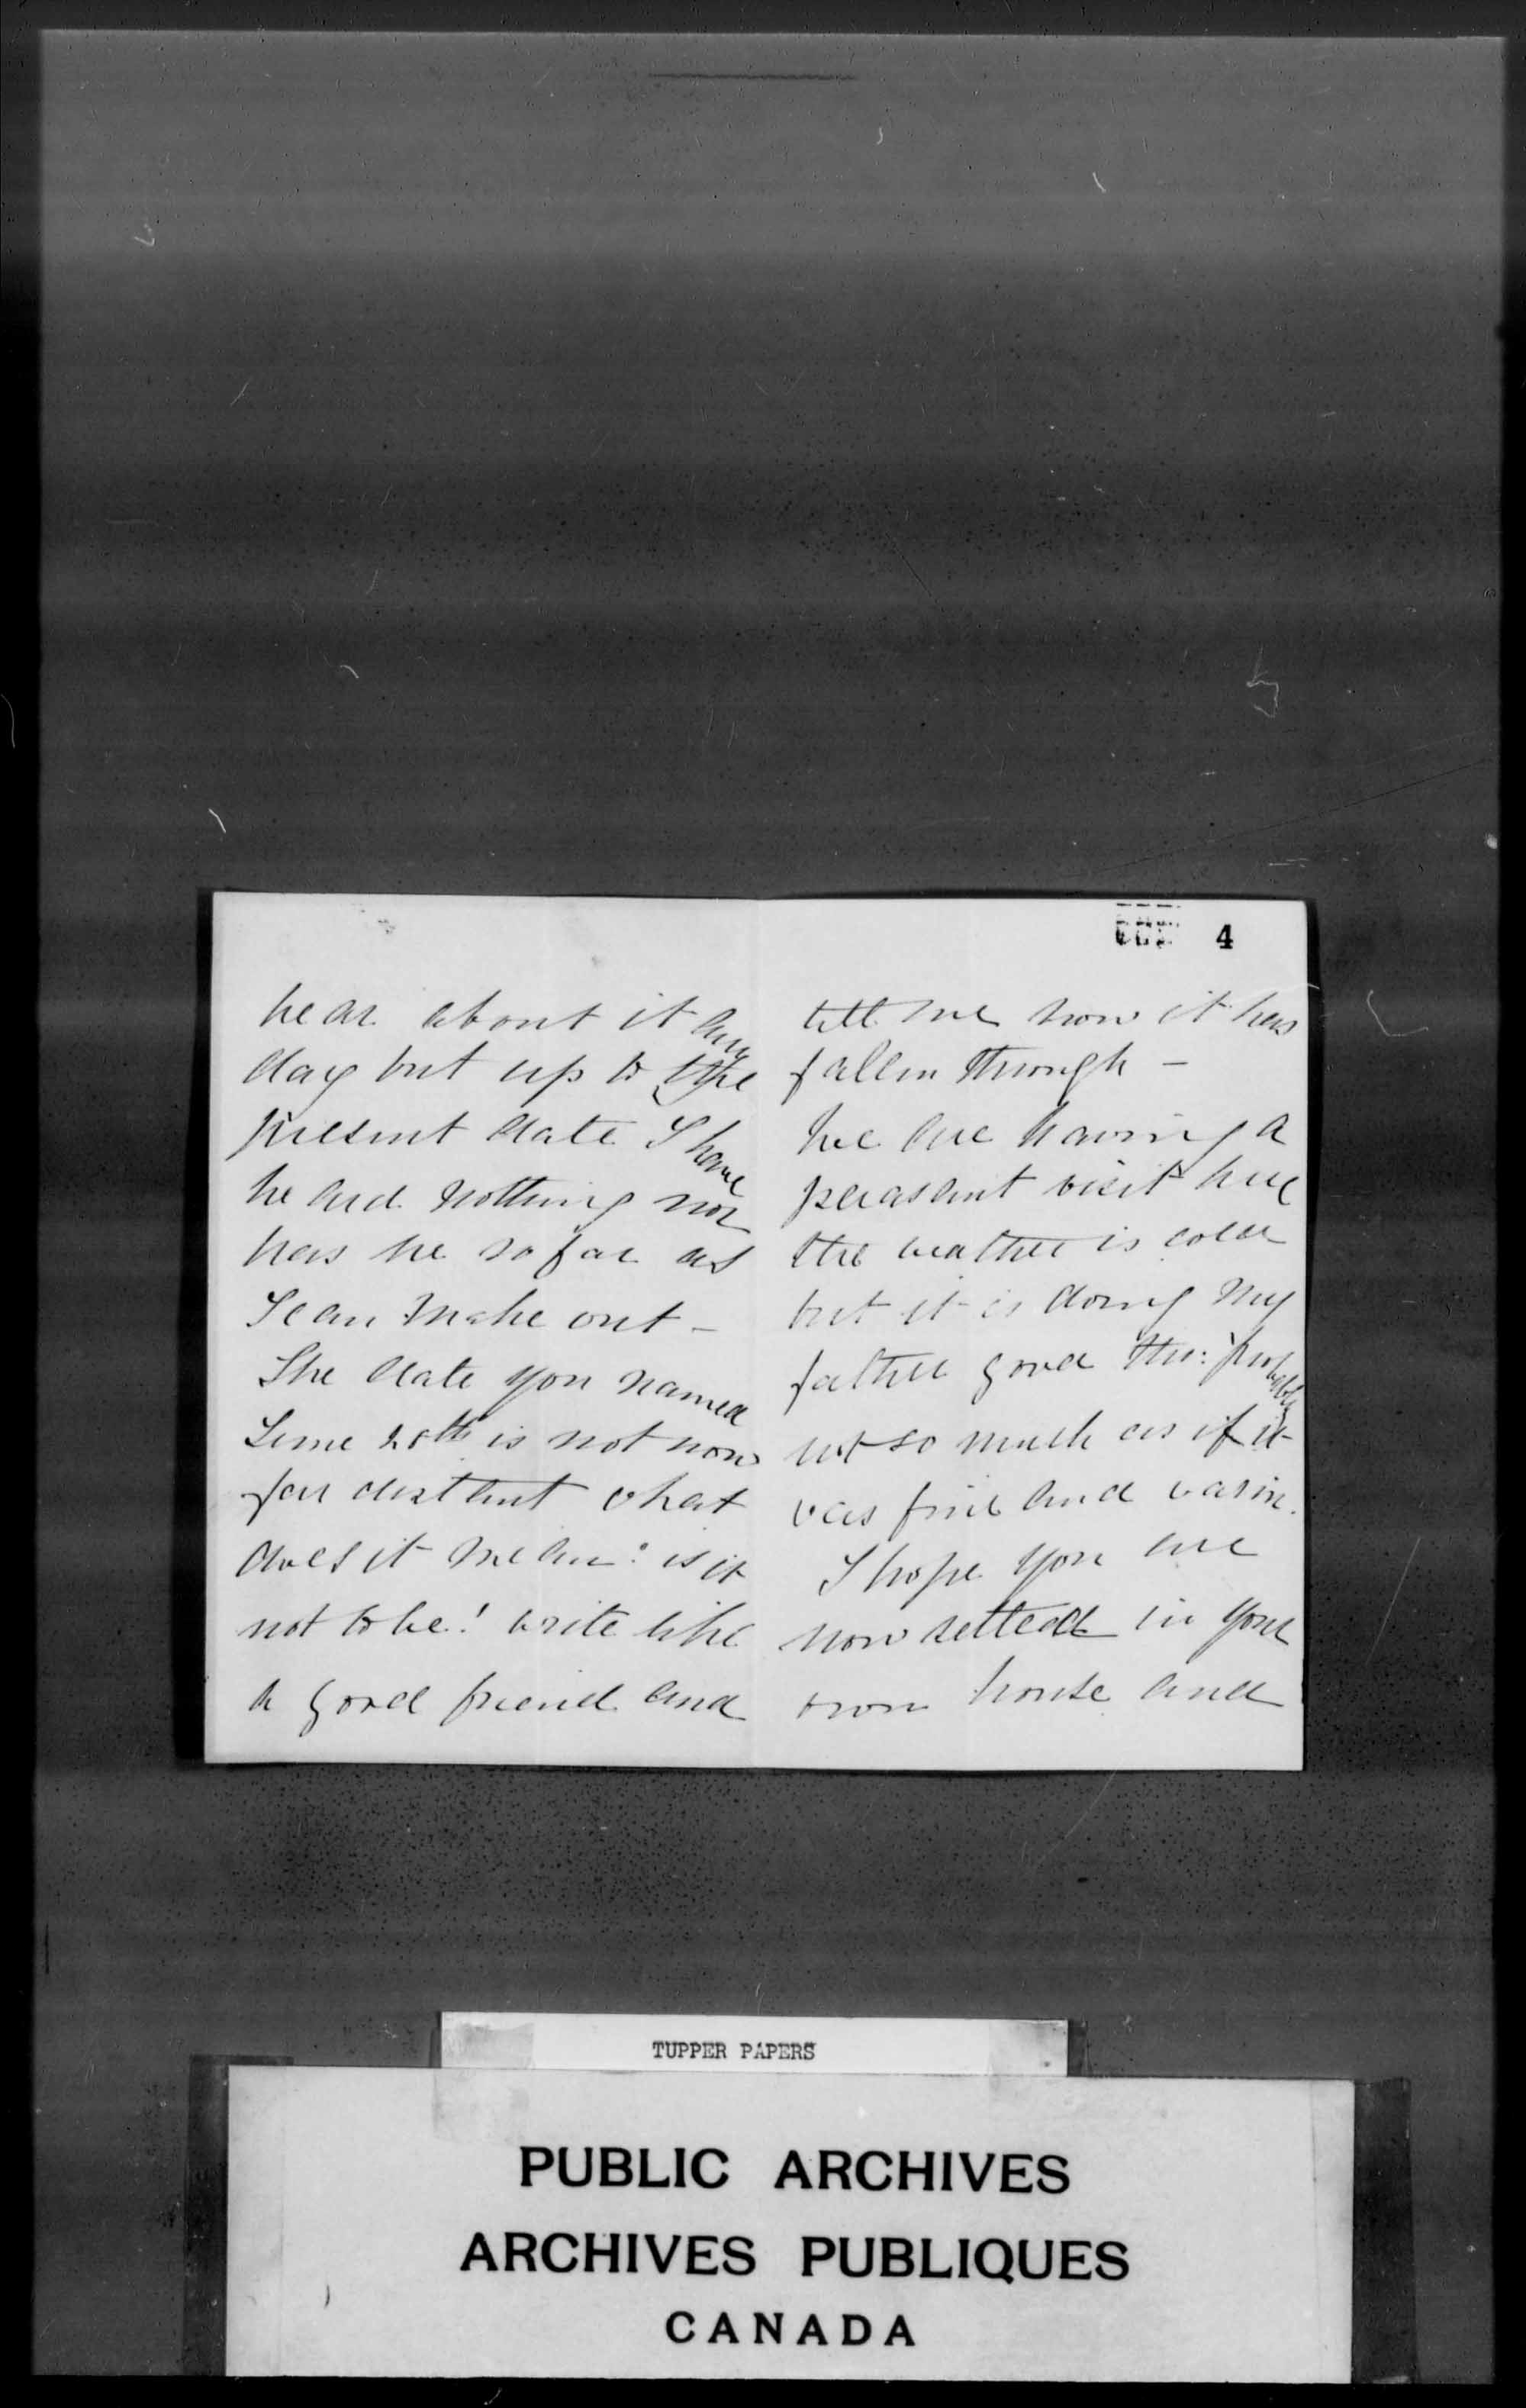 4
hear about it any
day but up to the
present date I have
heard nothing nor
has he so far as
I can make out –
The date you named
June 20th is not now
far distant what
does it mean: is it
not to be! write like
a good friend and
tell me how it has
fallen through –
We are having a
pleasant visit here
the weather is cold
but it is doing my
father good tho: probably
not so much as if it
was fine and warm.
I hope you are
now settled in your
own house and
TUPPER PAPERS
PUBLIC ARCHIVES
ARCHIVES PUBLIQUES
CANADA